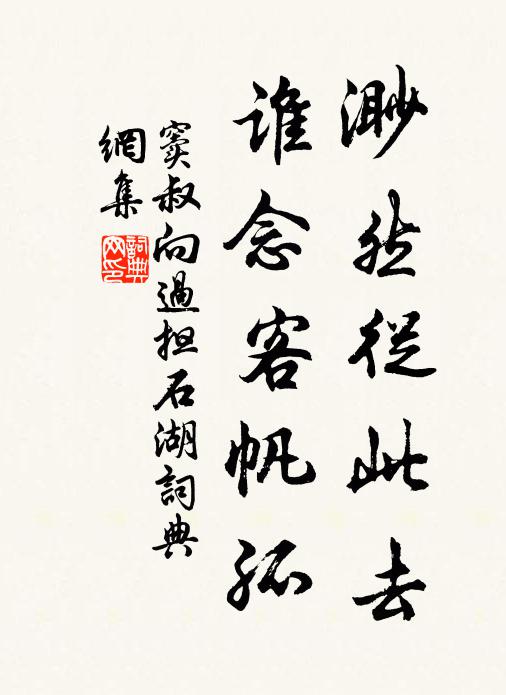 渺然從此去
誰念客帆孤
竇叔向過担石湖詞典
網集
詞典
网印